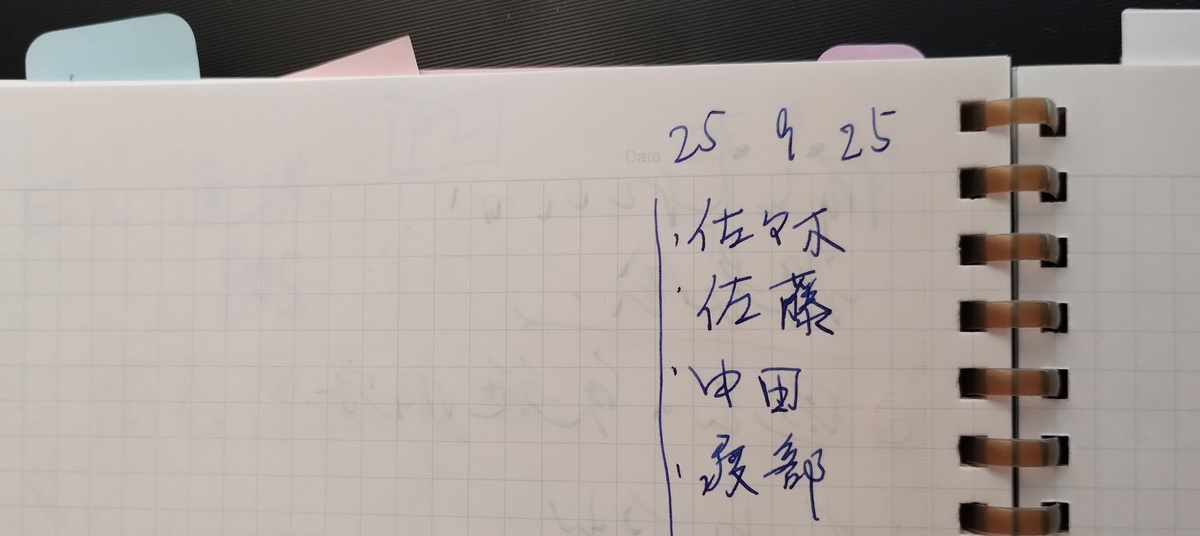 Date 25.9.25
・佐々木
・佐藤
・田
・部